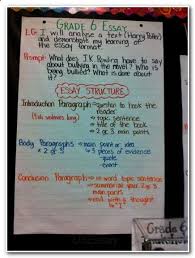 GRADE 6 ESSAY
LG: I will analyse a text (Harry Potter)
and demonstrate my learning of
the essay format.
Prompt: What does J.K. Rowling have to say
about bullying in the novel? Who is
being bullied? What is done about
it?
ESSAY STRUCTURE
Introduction Paragraph → question to hook the
reader
→ topic sentence
→ title of the book
→ 2 or 3 main points
Body Paragraphs → main point or idea
x 2 or 3 → 3 pieces of evidence
- quote
- event
Conclusion Paragraph → reword topic sentence
→ summarize your 2 or 3
main points
→ end with a thought
Grade 6